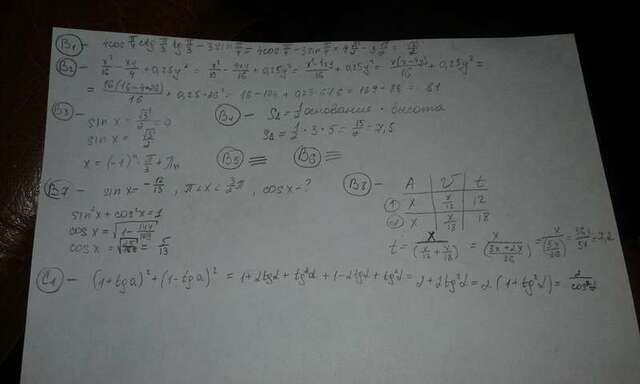 B1 - 4cos π/4 ctg π/3 tg π/3 - 3sin π/4 = 4cos π/4 - 3sin π/4 = 4 √2/2 - 3 √2/2 = √2/2
B2 - x²/16 - xy/4 + 0,25y² = x²/16 - 4xy/16 + 0,25y² = x²-4xy/16 + 0,25y² = x(x-4y)/16 + 0,25y² =
B3 -
sin x =
sin x =
x = (-1)ⁿ · π/3 + πn
B4 - S∆ = 1/2 основание · высота
S∆ = 1/2 · 3 · 5 = 15/2 = 7,5
B5 ≡ B6 ≡
B7 - sin x = -12/13, π<x<3/2π, cos x - ?
sin²x + cos²x = 1
cos x = √1 - 144/169
cos x = = 5/13
B8 -
A v t
① X x/12 12
② X x/18 18
t = x/(x/12 + x/18) = x/(3x+2x/36) = x/(5x/36) = 36x/5x = 7,2
C1 - (1+tgα)² + (1-tgα)² = 1+2tgα+tg²α+1-2tgα+tg²α = 2+2tg²α = 2·(1+tg²α) = 2/cos²α